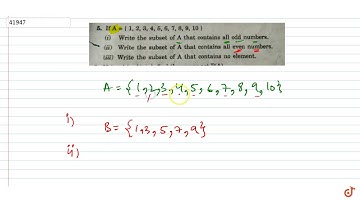 41947
5. If A = { 1, 2, 3, 4, 5, 6, 7, 8, 9, 10 }
(i) Write the subset of A that contains all odd numbers.
(ii) Write the subset of A that contains all even numbers.
(iii) Write the subset of A that contains no element.
A = {1,2,3,4,5,6,7,8,9,10}
i) B = {1,3,5,7,9}
ii)